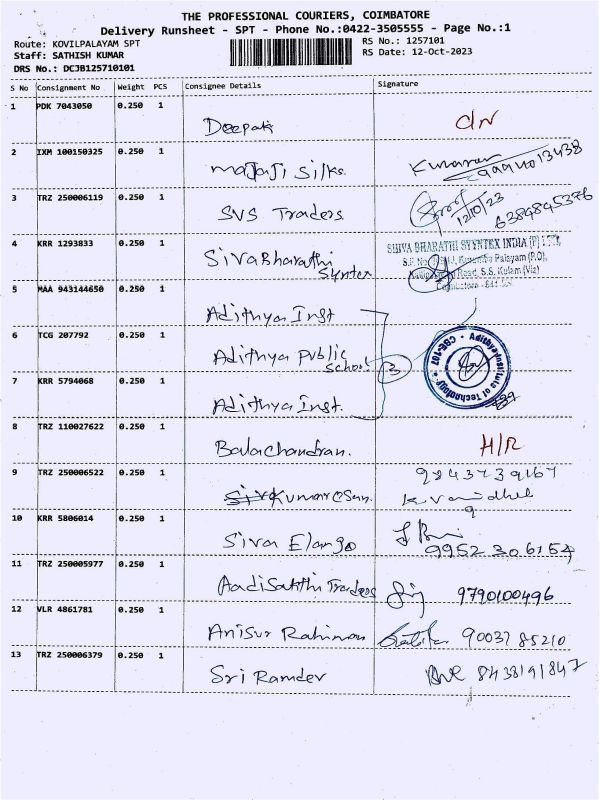 THE PROFESSIONAL COURIERS, COIMBATORE
Delivery Runsheet - SPT - Phone No.:0422-3505555 - Page No.:1
Route: KOVILPALAYAM SPT
RS No.: 1257101
Staff: SATHISH KUMAR
RS Date: 12-Oct-2023
DRS No.: DCJB125710101
S No Consignment No Weight PCS Consignee Details Signature
1 PDK 7043050 0.250 1
Deepak
2 IXM 100150325 0.250 1
Silks.
3 TRZ 250006119 0.250 1
SVS Traders
12/10/23 6384845376
4 KRR 1293833 0.250 1
SivaBharathi
SHIVA BHARATHI SYNTEX INDIA (P) LTD,
Palayam (P.O),
Road, S.S. Kulam (Via)
5 MAA 943144650 0.250 1
Adithya Inst
6 TCG 207792 0.250 1
Adithya Public
School
3
Adithya Institute of Technology • CBE-107
7 KRR 5794068 0.250 1
Adithya Inst.
8 TRZ 110027622 0.250 1
Balachandran.
H/R
9 TRZ 250006522 0.250 1
9843739167
10 KRR 5806014 0.250 1
Siva Elango
9952306154
11 TRZ 250005977 0.250 1
Aadisakthi Traders
9790100496
12 VLR 4861781 0.250 1
Anisur Rahman
9003785210
13 TRZ 250006379 0.250 1
Sri Ramdev
8438191847